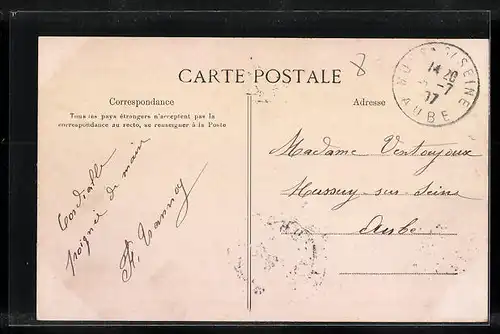 8
CARTE POSTALE
Correspondance
Tous les pays étrangers n'acceptent pas la
correspondance au recto, se renseigner à la Poste
Adresse
SEINE
14 20
-7
07
AUBE
Cordiale
poignée de main
Madame
Mussey-sur-Seine
Aube